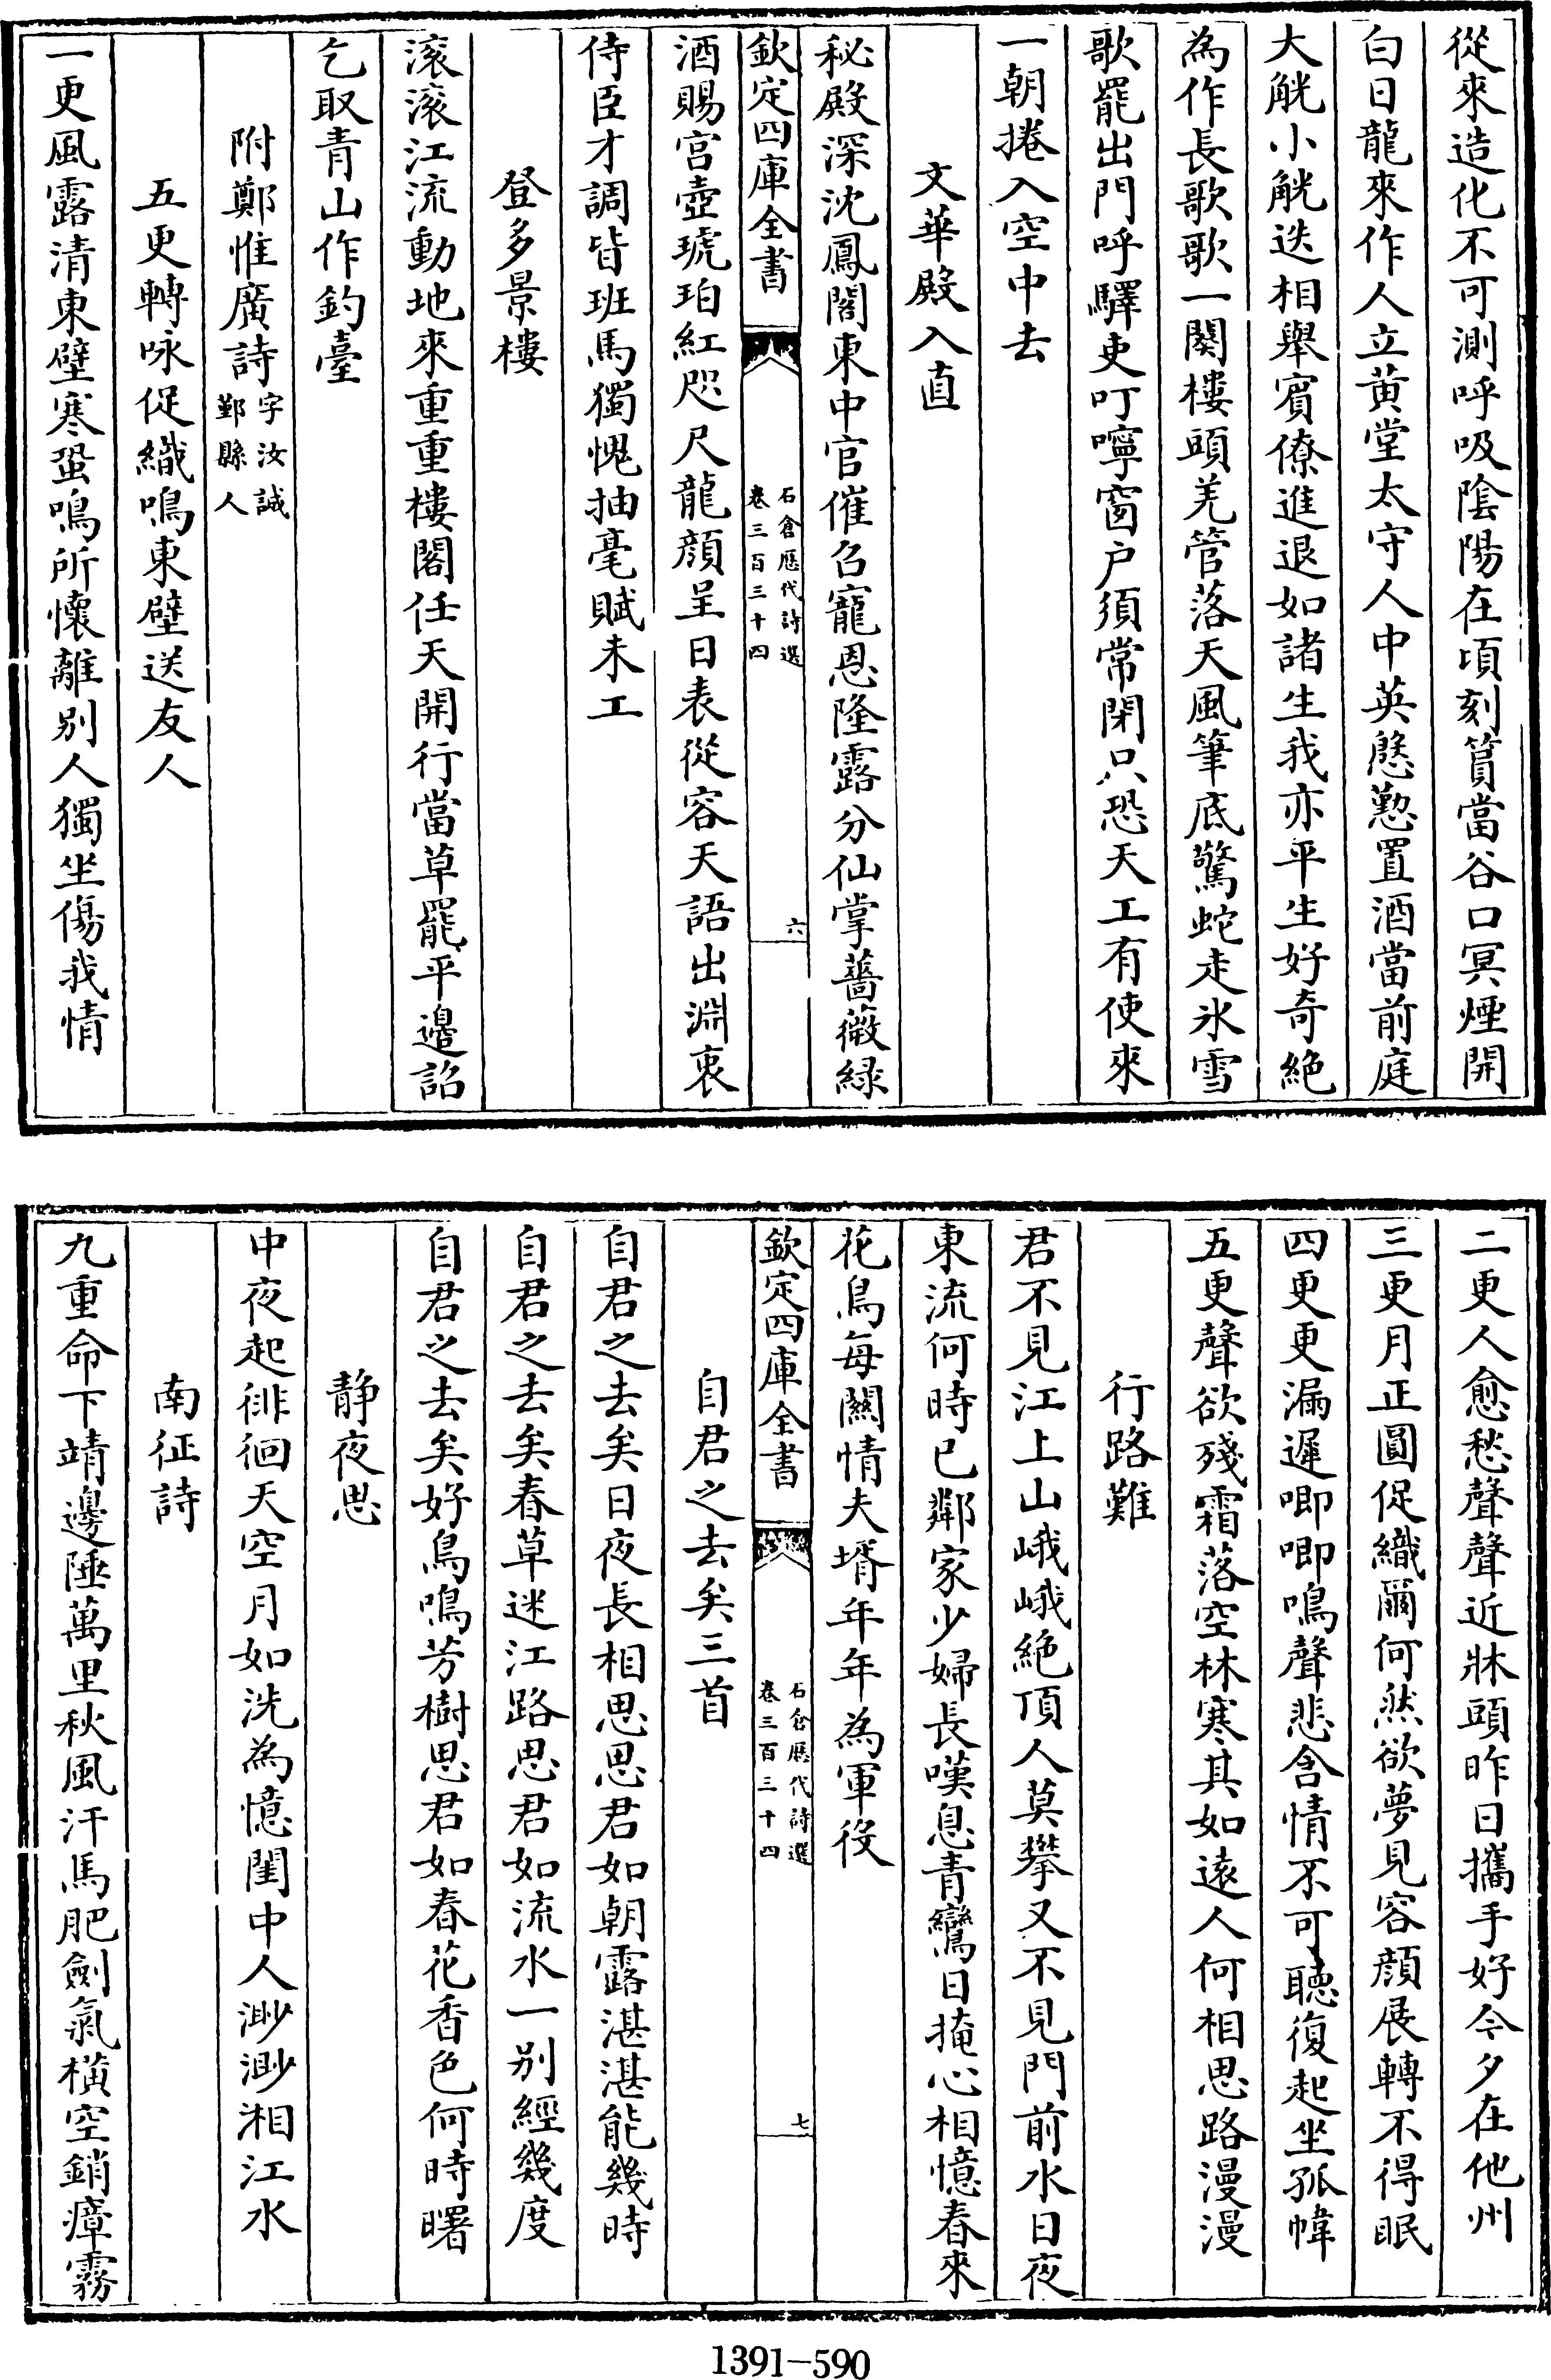 從來造化不可測呼吸陰陽在頃刻篔簹谷口冥煙開
白日龍來作人立黄堂太守人中英慇懃置酒當前庭
大觥小觥迭相舉賓僚進退如諸生我亦平生好奇絶
為作長歌歌一闋樓頭羌管落天風筆底驚蛇走氷雪
歌罷出門呼驛吏叮嚀窗户須常閉只恐天工有使來
一朝捲入空中去
文華殿入直
秘殿深沈鳳閣東中官催召寵恩隆露分仙掌薔薇緑
欽定四庫全書
石倉歷代詩選
卷三百三十四
六
酒賜宫壺琥珀紅咫尺龍顔呈日表從容天語出淵衷
侍臣才調皆班馬獨愧抽毫賦未工
登多景樓
滚滚江流動地來重重樓閣任天開行當草罷平邊詔
乞取青山作釣臺
附鄭惟廣詩字汝誠
鄞縣人
五更轉咏促織鳴東壁送友人
一更風露清東壁寒蛩鳴所懷離别人獨坐傷我情
二更人愈愁聲聲近牀頭昨日攜手好今夕在他州
三更月正圓促織爾何然欲夢見容顔展轉不得眠
四更更漏遲唧唧鳴聲悲含情不可聽復起坐孤幃
五更聲欲殘霜落空林寒其如遠人何相思路漫漫
行路難
君不見江上山峨峨絶頂人莫攀又不見門前水日夜
東流何時已鄰家少婦長嘆息青鸞日掩心相憶春來
花鳥每闗情夫壻年年為軍役
欽定四庫全書
石倉歷代詩選
卷三百三十四
七
自君之去矣三首
自君之去矣日夜長相思思君如朝露湛湛能幾時
自君之去矣春草迷江路思君如流水一别經幾度
自君之去矣好鳥鳴芳樹思君如春花香色何時曙
静夜思
中夜起徘徊天空月如洗為憶閨中人渺渺湘江水
南征詩
九重命下靖邊陲萬里秋風汗馬肥劍氣横空銷瘴霧
1391-590